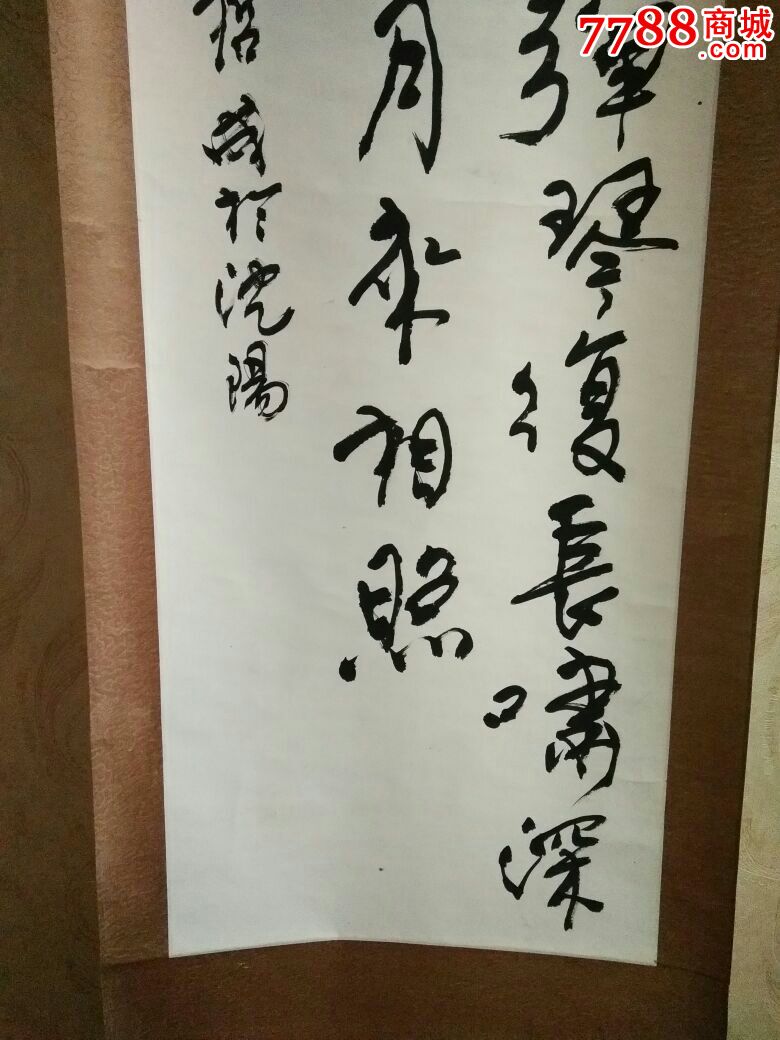 7788商城
.com
彈琴復長嘯深
月來相照
於沈陽